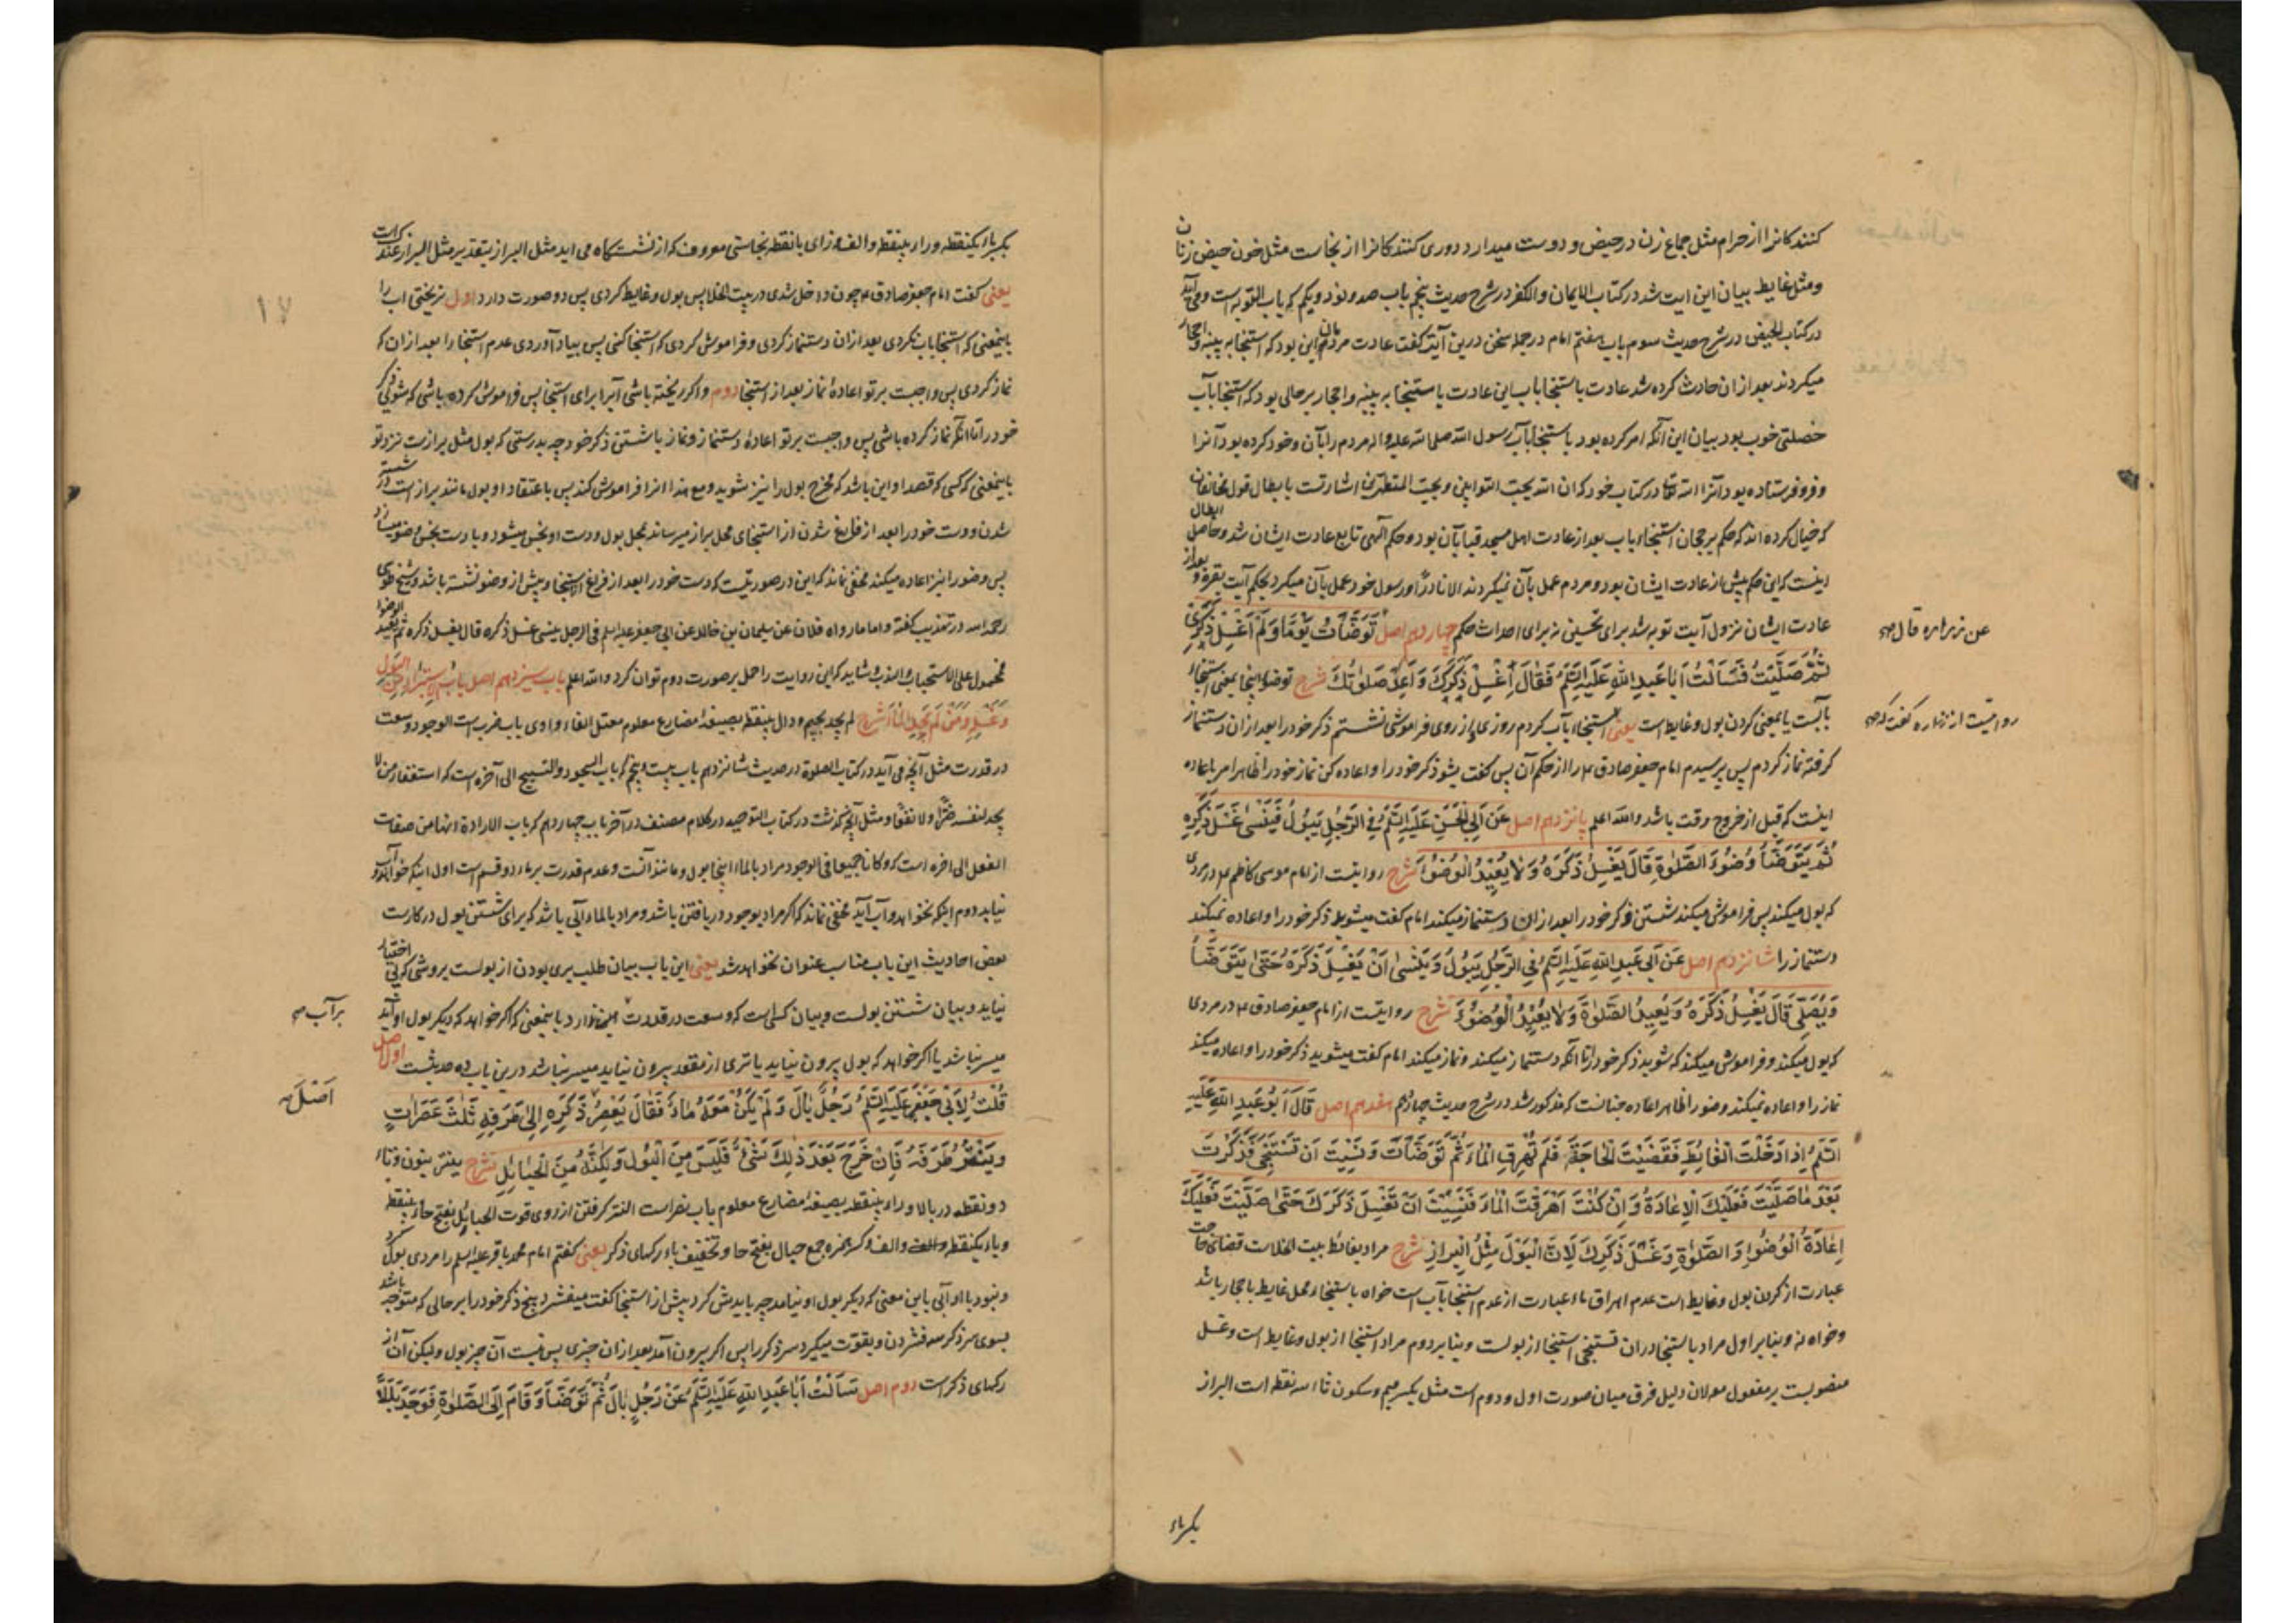 کنندکانرا از حرام مثل جماع زن در حیض و دوست میدارد دوری کنندکانرا از نجاست مثل خون حیض زنان
و مثل غایط بیان این ایت شد در کتاب الایمان والکفر در شرح حدیث پنجم باب صد و نود و یکم که باب التوبه است و می آید
در کتاب الحیض در شرح حدیث سوم باب هفتم امام در جمله سخن درین آیت گفت عادت مردمان این بود که استنجا به پنبه و احجار
میکردند بعد از ان حادث کرده شد عادت باستنجا باب این عادت باستنجا به پنبه و احجار بر حالی بود که استنجا بآب
خصلتی خوب بود بیان این آنکه امر کرده بود باستنجا بآب رسول الله صلی الله علیه واله مردم را بآن و خود کرده بود آنرا
و فرو فرستاده بود آنرا الله تعالی در کتاب خود که ان الله یحب التوابین ویحب المتطهرین اشارتست بابطال قول مخالفان
که خیال کرده اند که حکم برجحان استنجاء باب بعد از عادت اهل مسجد قبا بآن بود و حکم الهی تابع عادت ایشان شد و حاصل ابطال
اینست که این حکم پیش از عادت ایشان بود و مردم عمل بآن نمیکردند الا نادرًا و رسول خود عمل بآن میکرد بحکم آیت بقره و بعد از
عادت ایشان نزول آیت توبه شد برای تحسین نه برای احداث حکم چهاردهم اصل تَوَضَّأْتُ یَوْمًا وَلَمْ اَغْسِلْ ذَکَرِی
ثُمَّ صَلَّیْتُ فَسَاَلْتُ اَبَا عَبْدِ اللهِ عَلَیْهِ السَّلَمُ فَقَالَ اغْسِلْ ذَکَرَکَ وَ اَعِدْ صَلٰوتَکَ شرح توضؤ اینجا بمعنی استنجاء
بآبست یا بمعنی کردن بول و غایط است یعنی استنجاء بآب کردم روزی از روی فراموشی نشستم ذکر خود را بعد از ان دستنماز
گرفته نماز کردم پس پرسیدم امام جعفر صادق ع را از حکم آن پس گفت بشو ذکر خود را و اعاده کن نماز خود را ظاهر امر باعاده
اینست که قبل از خروج وقت باشد والله اعلم پانزدهم اصل عَنْ اَبِی الْحَسَنِ عَلَیْهِ السَّلَمُ فِی الرَّجُلِ یَبُولُ فَیَنْسٰی غَسْلَ ذَکَرِهِ
ثُمَّ یَتَوَضَّأُ وُضُوءَ الصَّلٰوةِ قَالَ یَغْسِلُ ذَکَرَهُ وَلَا یُعِیدُ الْوُضُوءَ شرح روایتست از امام موسی کاظم ع در مردی
که بول میکند پس فراموش میکند شستن ذکر خود را بعد از ان دستنماز میکند امام گفت میشوید ذکر خود را و اعاده نمیکند
دستنماز را شانزدهم اصل عَنْ اَبِی عَبْدِ اللهِ عَلَیْهِ السَّلَمُ فِی الرَّجُلِ یَبُولُ وَ یَنْسٰی اَنْ یَغْسِلَ ذَکَرَهُ حَتّٰی یَتَوَضَّأَ
وَیُصَلِّیَ قَالَ یَغْسِلُ ذَکَرَهُ وَ یُعِیدُ الصَّلٰوةَ وَلَا یُعِیدُ الْوُضُوءَ شرح روایتست از امام جعفر صادق ع در مردی
که بول میکند و فراموش میکند که شوید ذکر خود را تا آنکه دستنماز میکند و نماز میکند امام گفت میشوید ذکر خود را و اعاده میکند
نماز را و اعاده نمیکند وضو را ظاهر اعاده چنانست که مذکور شد در شرح حدیث چهاردهم هفدهم اصل قَالَ اَبُو عَبْدِ اللهِ عَلَیْهِ
السَّلَمُ اِذَا دَخَلْتَ الْغَائِطَ فَقَضَیْتَ الْحَاجَةَ فَلَمْ تُهْرِقِ الْمَاءَ ثُمَّ تَوَضَّأْتَ وَ نَسِیْتَ اَنْ تَسْتَنْجِیَ فَذَکَرْتَ
بَعْدَ مَا صَلَّیْتَ فَعَلَیْکَ الْاِعَادَةُ وَ اِنْ کُنْتَ اَهْرَقْتَ الْمَاءَ فَنَسِیْتَ اَنْ تَغْسِلَ ذَکَرَکَ حَتّٰی صَلَّیْتَ فَعَلَیْکَ
اِعَادَةُ الْوُضُوءِ وَ الصَّلٰوةِ وَ غَسْلُ ذَکَرِکَ لِاَنَّ الْبَوْلَ مِثْلُ الْبِرَازِ شرح مراد بغائط بیت الخلاست قضای حاجت
عبارت از کردن بول و غایط است عدم اهراق ماء عبارت از عدم استنجا بآب است خواه باستنجاء محل غایط باحجار باشد
و خواه نه و بنابر اول مراد باستنجا در ان تستنجی استنجا از بولست و بنابر دوم مراد استنجا از بول و غایط است و غسل
منصوبست بر مفعول معه لان دلیل فرق میان صورت اول و دوم است مثل بکسر میم و سکون ثاء سه نقطه است البراز
عن زراره قال صح
روایتست از زراره گفت که صح
بکسر باء
بکسر باء یکنقطه و راء بینقطه و الف و زای بانقطه نجاستی معروف که از نشستگاه می اید مثل البراز بتقدیر مثل البراز عندک است
یعنی گفت امام جعفر صادق ع چون داخل شدی در بیت الخلا پس بول و غایط کردی پس دو صورت دارد اول نریختی اب را
باینمعنی که استنجا باب نکردی بعد از ان دستنماز کردی و فراموش کردی که استنجا کنی پس بیاد آوردی عدم استنجا را بعد از ان که
نماز کردی پس واجبست بر تو اعادهٔ نماز بعد از استنجا دوم و اگر ریخته باشی آبرا برای استنجا پس فراموش کرده باشی که بشوئی ذکر
خود را تا آنکه نماز کرده باشی پس واجبست بر تو اعادهٔ دستنماز و نماز با شستن ذکر خود چه بدرستی که بول مثل برازست نزد تو
باینمعنی که کسی که قصد او این باشد که مخرج بول را نیز شوید و مع هذا انرا فراموش کند پس باعتقاد او بول مانند براز است در شسته
شدن و دست خود را بعد از فارغ شدن از استنجای محل براز میرساند بمحل بول و دست او نجس میشود و با دست نجس وضو میسازد
پس وضو را نیز اعاده میکند مخفی نماند که این در صورتیست که دست خود را بعد از فراغ از استنجا و پیش از وضو نشسته باشد و شیخ طوسی
رحمه الله در تهذیب گفته و اما ما رواه فلان عن سلیمان بن خالد عن ابی جعفر علیه السلم فی الرجل ینسی غسل ذکره قال یغسل ذکره ثم یعید الوضوء
محمول علی الاستحباب و الندب شاید که این روایت را حمل بر صورت دوم توان کرد والله اعلم باب سیزدهم اصل باب الاستبراء من البول
وَغَسْلِهِ وَمَنْ لَمْ یَجِدِ الْمَاءَ شرح لم یجد بجیم و دال بینقطه بصیغهٔ مضارع معلوم معتل الفاء واوی باب ضرب است الوجود وسعت
در قدرت مثل آنچه می آید در کتاب الصلوة در حدیث شانزدهم باب بیست و پنجم که باب السجود والتسبیح الی آخره است که استغفار من لا
یجد لنفسه ضرًّا ولا نفعًا و مثل آنچه گذشت در کتاب التوحید در کلام مصنف در آخر باب چهاردهم که باب الارادة انها من صفات
الفعل الی اخره است که و کانا جمیعا فی الوجود مراد بالماء اینجا بول و مانند آنست و عدم قدرت بر ماء دو قسم است اول اینکه خواهد و آب
نیاید دوم اینکه نخواهد و آب آید مخفی نماند که اگر مراد بوجود دریافتن باشد و مراد بالماء آبی باشد که برای شستن بول در کارست
بعض احادیث این باب مناسب عنوان نخواهد شد یعنی این باب بیان طلب بری بودن از بولست بروشی که بی اختیار
نیاید و بیان شستن بولست و بیان کسی است که وسعت در قدرت ندارد باینمعنی که اگر خواهد که دیگر بول او آید
میسر نباشد یا اگر خواهد که بول بیرون نیاید یا تری از مقعد بیرون نیاید میسر نباشد درین باب ده حدیثست اول اصل
قُلْتُ لِاَبِی جَعْفَرٍ عَلَیْهِ السَّلَمُ رَجُلٌ بَالَ وَ لَمْ یَکُنْ مَعَهُ مَاءٌ فَقَالَ یَعْصِرُ ذَکَرِهِ اِلٰی طَرَفِهِ ثَلٰثَ عَصَرَاتٍ
وَیَنْتُرُ طَرَفَهُ فَاِنْ خَرَجَ بَعْدَ ذٰلِکَ شَیْءٌ فَلَیْسَ مِنَ الْبَوْلِ وَلٰکِنَّهُ مِنَ الْحَبَائِلِ شرح ینتر بنون و تاء
دو نقطه در بالا و راء بینقطه بصیغهٔ مضارع معلوم باب نصر است النتر گرفتن از روی قوت الحبائل بفتح حاء بینقطه
و باء یکنقطه و الف و کسر همزه جمع حبال بفتح حا و تخفیف باء رکهای ذکر یعنی گفتم امام محمد باقر علیه السلم را مردی بول کرد
و نبود با او آبی باین معنی که دیگر بول او نیامد چه بایدش کرد پیش از استنجا گفت میفشرد بیخ ذکر خود را بر حالی که متوجه باشد
بسوی سر ذکر سه فشردن و بقوت میگیرد سر ذکر را پس اگر بیرون آمد بعد از ان چیزی پس نیست آن چیز بول و لیکن آن از
رکهای ذکر است دوم اصل سَاَلْتُ اَبَا عَبْدِ اللهِ عَلَیْهِ السَّلَمُ عَنْ رَجُلٍ بَالَ ثُمَّ تَوَضَّأَ وَ قَامَ اِلَی الصَّلٰوةِ فَوَجَدَ بَلَلًا
بر آب صح
اَصْلٌ
۱۷